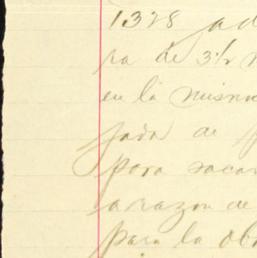 1328 ad
ra de 3½
en la misma
jada de
para sacar
a razon de
para la ob